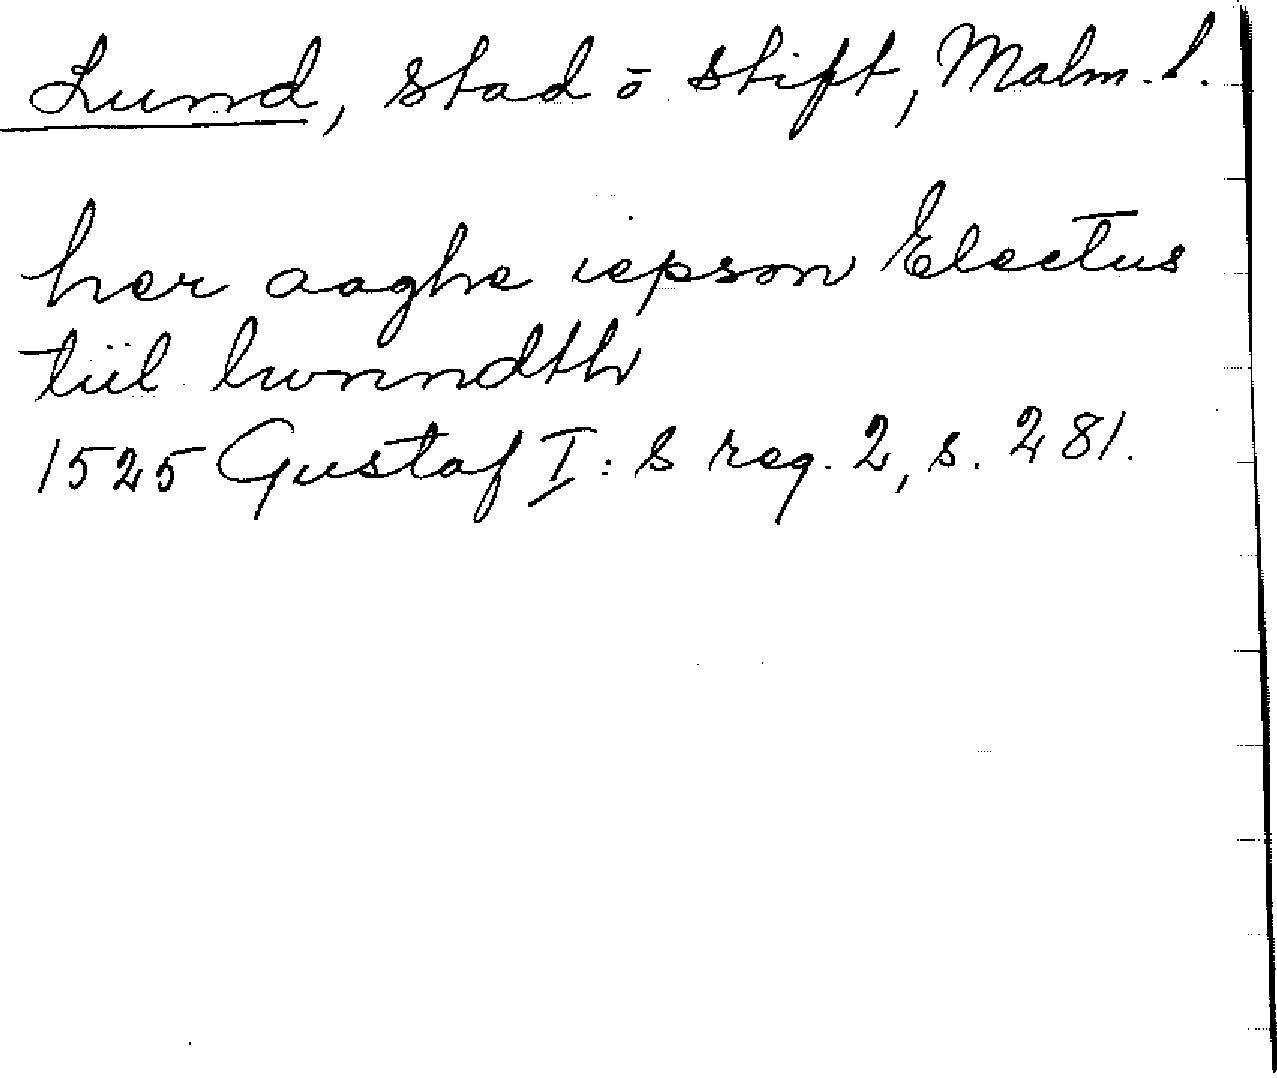 Lund, stad o stift, Malm. l.
her aaghe iepson Electus
tiil lwnndth
1525 Gustaf I:s reg. 2, s. 281.